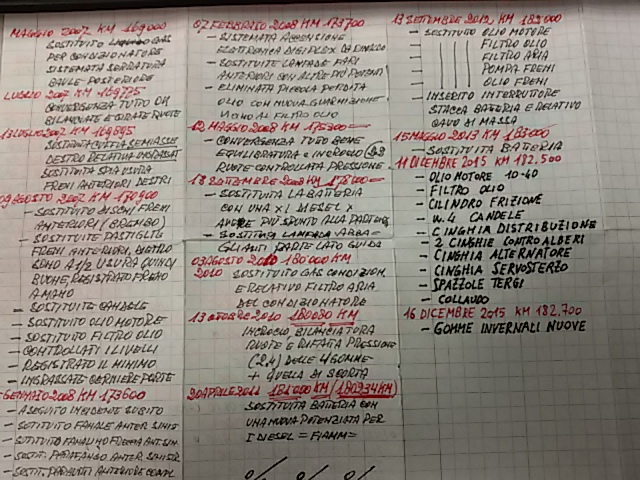 MAGGIO 2007 KM 169000
SOSTITUITO GAS
PER CONDIZIONATORE
SISTEMATA SERRATURA
BAULE POSTERIORE
LUGLIO 2007 KM 169775
CONVERGENZA TUTTO OK
BILANCIATE E GIRATE RUOTE
13 LUGLIO 2007 KM 169895
SOSTITUITA CUFFIA SEMIASSE
DESTRO RELATIVA
SOSTITUITA SPIA USURA
FRENI ANTERIORI DESTRI
09 AGOSTO 2007 KM 170400
- SOSTITUITO DISCHI FRENI
ANTERIORI (BREMBO)
- SOSTITUITE PASTIGLIE
FRENI ANTERIORI, DIETRO
SONO A 1/2 USURA QUINDI
BUONE, REGISTRATO FRENO
A MANO
- SOSTITUITE CANDELE
- SOSTITUITO OLIO MOTORE
- SOSTITUITO FILTRO OLIO
- CONTROLLATI I LIVELLI
- REGISTRATO IL MINIMO
- INGRASSATE CERNIERE PORTE
GENNAIO 2008 KM 173600
- A SEGUITO INCIDENTE SUBITO
- SOTITUITO FANALE ANTER SINIS
- SOTITUITO FANALINO FRECCIA ANT. SIN.
- SOSTIT. PARAFANGO ANTER. SINISTR
- SOSTIT. PARAURTI ANTERIORE COMPL
07 FEBBRAIO 2008 KM 173700
- SISTEMATA ACCENSIONE
ELETTRONICA DIGIPLEX
- SOSTITUITE LAMPADE FARI
ANTERIORI CON ALTRE PIÙ POTENTI
- ELIMINATA PICCOLA PERDITA
OLIO CON NUOVA GUARNIZIONE
VICINO AL FILTRO OLIO
12 MAGGIO 2008 KM 175300
- CONVERGENZA TUTTO BENE
EQUILIBRATURA e INCROCIO
RUOTE CONTROLLATA PRESSIONE
18 SETTEMBRE 2008 KM 178000
- SOSTITUITA LA BATTERIA
CON UNA X I DIESEL X
AVERE PIÙ SPUNTO ALLA PARTENZA
- SOSTITUITA LAMPADA
LATO GUIDA
03 AGOSTO 2010 180000 KM
2010 SOSTITUITO GAS CONDIZION.
E RELATIVO FILTRO ARIA
DEL CONDIZIONATORE
13 OTTOBRE 2010 180080 KM
INCROCIO, BILANCIATURA
RUOTE E RIFATA PRESSIONE
(2,4) DELLE 4 GOMME
+ QUELLA DI SCORTA
20 APRILE 2011 181000 KM (180934 KM)
SOSTITUITA BATTERIA CON
UNA NUOVA POTENZIATA PER
I DIESEL = FIAMM =
13 SETTEMBRE 2012 KM 182000
- SOSTITUITO OLIO MOTORE
FILTRO OLIO
FILTRO ARIA
POMPA FRENI
OLIO FRENI
- INSERITO INTERRUTTORE
STACCA BATTERIA E RELATIVO
CAVO DI MASSA
15 MAGGIO 2013 KM 183000
- SOSTITUITA BATTERIA
11 DICEMBRE 2015 KM 182.500
- OLIO MOTORE 10-40
- FILTRO OLIO
- CILINDRO FRIZIONE
- N. 4 CANDELE
- CINGHIA DISTRIBUZIONE
- 2 CINGHIE CONTROALBERI
- CINGHIA ALTERNATORE
- CINGHIA SERVOSTERZO
- SPAZZOLE TERGI
- COLLAUDO
16 DICEMBRE 2015 KM 182.700
- GOMME INVERNALI NUOVE